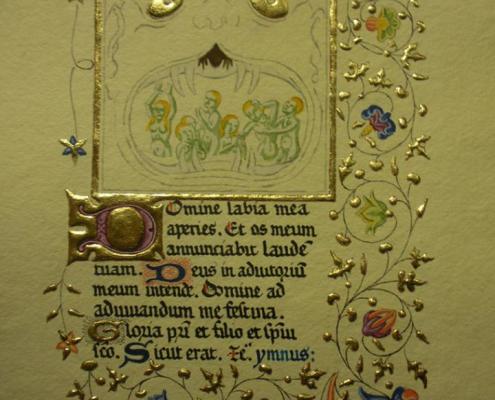 Domine labia mea
aperies. Et os meum
annunciabit laudē
tuam. Deus in adiutoriū
meum intende. Domine ad
adiuvandum me festina.
Gloria pri et filio et spiu
sco. Sicut erat. Ymnus: